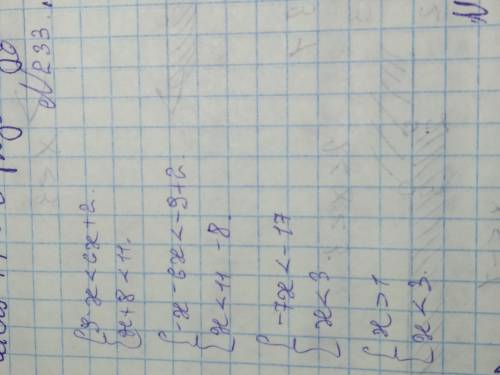 №233.
{9-x<6x+2.
{x+8<11.
{-x-6x<-9+2.
{x<11-8.
{-7x<-17
{x<3
{x>1
{x<3.